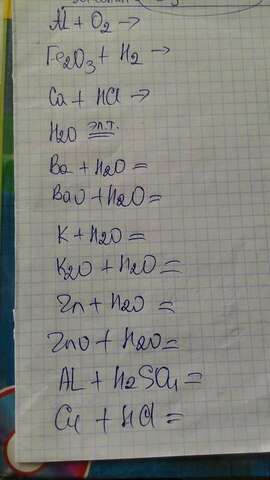 Al + O2 →
Fe2O3 + H2 →
Ca + HCl →
H2O эл.т. =
Ba + H2O =
BaO + H2O =
K + H2O =
K2O + H2O =
Zn + H2O =
ZnO + H2O =
AL + H2SO4 =
Cu + HCl =